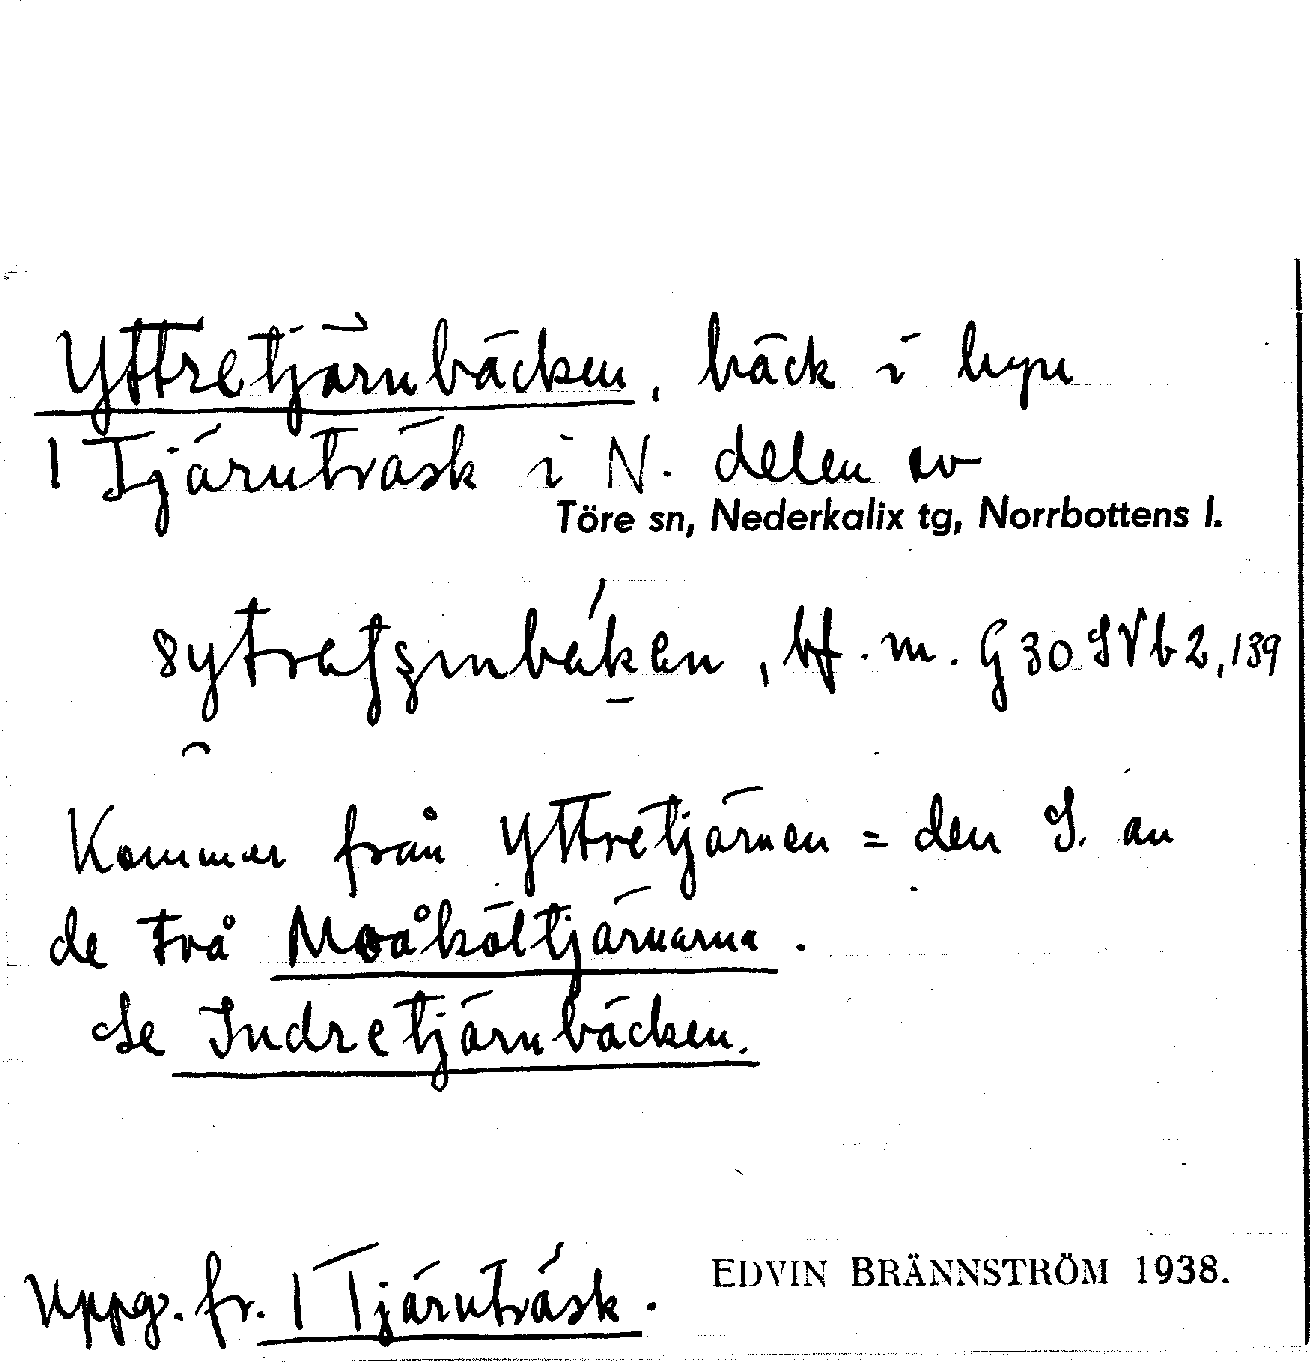 Yttretjärnbäcken, bäck i byn
1 Tjärnträsk i N. delen av
Töre sn, Nederkalix tg, Norrbottens l.
bf. m. G 30 SV b 2, 139
Kommer från Yttretjärnen = den S. av
de två Moåköltjärnarna.
Se Indretjärnbäcken.
Uppg. fr. 1 Tjärnträsk.
EDVIN BRÄNNSTRÖM 1938.